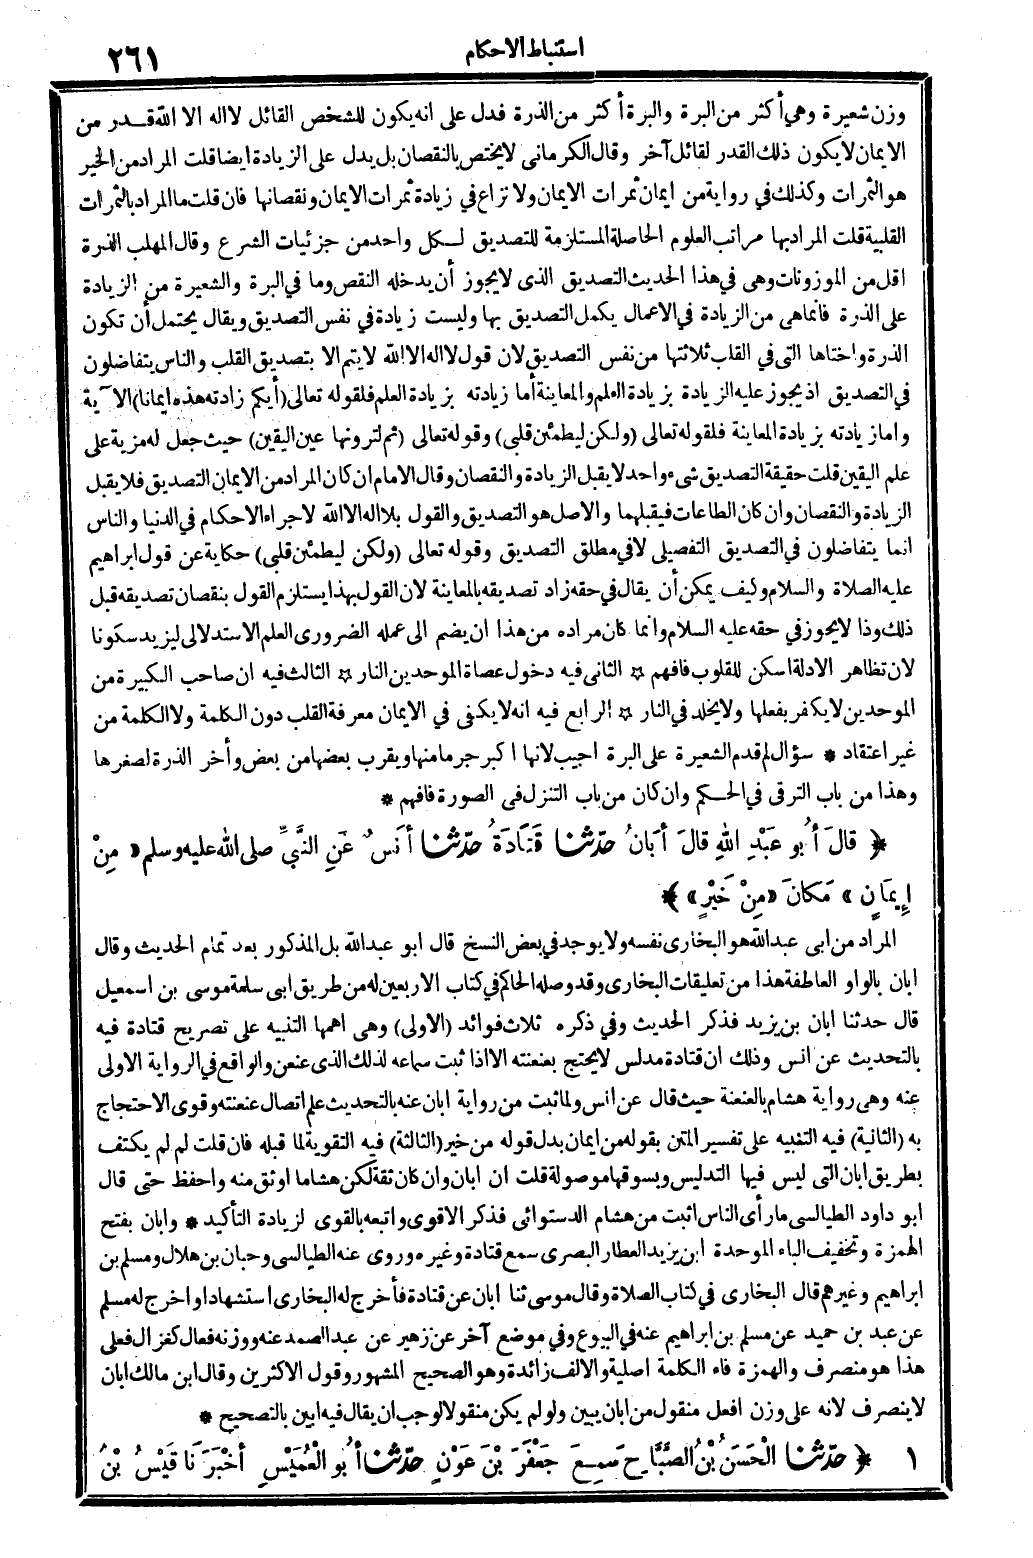 استنباط الاحكام
٢٦١
وزن شعيرة وهي أكثر من البرة والبرة أكثر من الذرة فدل على انه يكون للشخص القائل لا اله الا الله قدر من
الايمان لا يكون ذلك القدر لقائل آخر وقال الكرماني لا يختص بالنقصان بل يدل على الزيادة ايضا قلت المراد من الخير
هو الثمرات وكذلك في رواية من ايمان ثمرات الايمان ولا نزاع في زيادة ثمرات الايمان ونقصانها فان قلت ما المراد بالثمرات
القلبية قلت المراد بها مراتب العلوم الحاصلة المستلزمة للتصديق لكل واحد من جزئيات الشرع وقال المهلب الذرة
اقل من الموزونات وهى في هذا الحديث التصديق الذى لا يجوز أن يدخله النقص وما في البرة والشعيرة من الزيادة
على الذرة فانما هى من الزيادة في الاعمال يكمل التصديق بها وليست زيادة في نفس التصديق ويقال يحتمل أن تكون
الذرة واختاها التى في القلب ثلاثتها من نفس التصديق لان قول لا اله الا الله لا يتم الا بتصديق القلب والناس يتفاضلون
في التصديق اذ يجوز عليه الزيادة بزيادة العلم والمعاينة أما زيادته بزيادة العلم فلقوله تعالى (أيكم زادته هذه ايمانا) الآية
واما زيادته بزيادة المعاينة فلقوله تعالى (ولكن ليطمئن قلبي) وقوله تعالى (ثم لترونها عين اليقين) حيث جعل له مزية على
علم اليقين قلت حقيقة التصديق شىء واحد لا يقبل الزيادة والنقصان وقال الامام ان كان المراد من الايمان التصديق فلا يقبل
الزيادة والنقصان وان كان الطاعات فيقبلهما والاصل هو التصديق والقول بلا اله الا الله لاجراء الاحكام في الدنيا والناس
انما يتفاضلون في التصديق التفصيلى لا في مطلق التصديق وقوله تعالى (ولكن ليطمئن قلبي) حكاية عن قول ابراهيم
عليه الصلاة والسلام وكيف يمكن أن يقال في حقه زاد تصديقه بالمعاينة لان القول بهذا يستلزم القول بنقصان تصديقه قبل
ذلك وذا لا يجوز في حقه عليه السلام وانما كان مراده من هذا ان يضم الى عمله الضرورى العلم الاستدلالى ليزيد سكونا
لان تظاهر الادلة اسكن للقلوب فافهم ☆ الثانى فيه دخول عصاة الموحدين النار ☆ الثالث فيه ان صاحب الكبيرة من
الموحدين لا يكفر بفعلها ولا يخلد في النار ☆ الرابع فيه انه لا يكفى في الايمان معرفة القلب دون الكلمة ولا الكلمة من
غير اعتقاد * سؤال لم قدم الشعيرة على البرة اجيب لانها اكبر جرما منها ويقرب بعضها من بعض وأخر الذرة لصغرها
وهذا من باب الترقى في الحكم وان كان من باب التنزل في الصورة فافهم *
﴿ قَالَ أَبُو عَبْدِ اللهِ قالَ أَبَانُ حَدَّثنا قَتَادَةُ حَدَّثنا أَنَسٌ عَنِ النَّبيِّ صلى الله عليه وسلم « مِنْ
إِيمَانٍ » مَكانَ « مِنْ خَيْرٍ » ﴾
المراد من ابى عبد الله هو البخارى نفسه ولا يوجد في بعض النسخ قال ابو عبد الله بل المذكور بعد تمام الحديث وقال
ابان بالواو العاطفة هذا من تعليقات البخارى وقد وصله الحاكم في كتاب الاربعين له من طريق ابى سلمة موسى بن اسمعيل
قال حدثنا ابان بن يزيد فذكر الحديث وفي ذكره ثلاث فوائد (الاولى) وهى اهمها التنبيه على تصريح قتادة فيه
بالتحديث عن انس وذلك ان قتادة مدلس لا يحتج بعنعنته الا اذا ثبت سماعه لذلك الذى عنعن والواقع في الرواية الاولى
عنه وهى رواية هشام بالعنعنة حيث قال عن انس ولما ثبت من رواية ابان عنه بالتحديث علم اتصال عنعنته وقوى الاحتجاج
به (الثانية) فيه التنبيه على تفسير المتن بقوله من ايمان بدل قوله من خير (الثالثة) فيه التقوية لما قبله فان قلت لم لم يكتف
بطريق ابان التى ليس فيها التدليس ويسوقها موصولة قلت ان ابان وان كان ثقة لكن هشاما اوثق منه واحفظ حتى قال
ابو داود الطيالسى ما رأى الناس اثبت من هشام الدستوائى فذكر الاقوى واتبعه بالقوى لزيادة التأكيد * وابان بفتح
الهمزة وتخفيف الباء الموحدة ابن يزيد العطار البصرى سمع قتادة وغيره وروى عنه الطيالسى وحبان بن هلال ومسلم بن
ابراهيم وغيرهم قال البخارى في كتاب الصلاة وقال موسى ثنا ابان عن قتادة فأخرج له البخارى استشهادا واخرج له مسلم
عن عبد بن حميد عن مسلم بن ابراهيم عنه في البيوع وفي موضع آخر عن زهير عن عبد الصمد عنه ووزنه فعال كغزال فعلى
هذا هو منصرف والهمزة فاء الكلمة اصلية والالف زائدة وهو الصحيح المشهور وقول الاكثرين وقال ابن مالك ابان
لا ينصرف لانه على وزن افعل منقول من ابان يبين ولو لم يكن منقولا لوجب ان يقال فيه ابين بالتصحيح *
١ ﴿ حَدَّثنا الْحَسَنُ بْنُ الصَّبَّاحِ سَمِعَ جَعْفَرَ بْنَ عَوْنٍ حَدَّثنا أَبُو الْعُمَيْسِ أَخْبَرَنَا قَيْسُ بْنُ